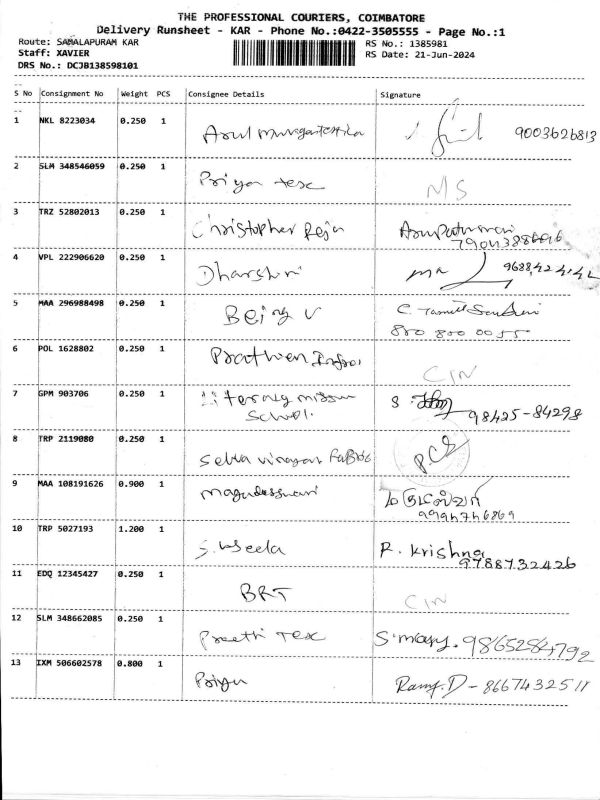 THE PROFESSIONAL COURIERS, COIMBATORE
Delivery Runsheet - KAR - Phone No.:0422-3505555 - Page No.:1
Route: SAMALAPURAM KAR RS No.: 1385981
Staff: XAVIER RS Date: 21-Jun-2024
DRS No.: DCJB138598101
S No Consignment No Weight PCS Consignee Details Signature
1 NKL 8223034 0.250 1 9003626813
2 SLM 348546059 0.250 1 Priya tex MS
3 TRZ 52802013 0.250 1 Christopher Reja
4 VPL 222906620 0.250 1 Dharshni
5 MAA 296988498 0.250 1 Being U C.
800 800 0055
6 POL 1628802 0.250 1
7 GPM 903706 0.250 1 S.
School. 98425-84298
8 TRP 2119080 0.250 1 PCS
9 MAA 108191626 0.900 1
10 TRP 5027193 1.200 1 R. Krishna
9788732426
11 EDQ 12345427 0.250 1 BRT
12 SLM 348662085 0.250 1 Preethi Tex S.mary. 9865284792
13 IXM 506602578 0.800 1 Priya Ramj.D - 8667432511